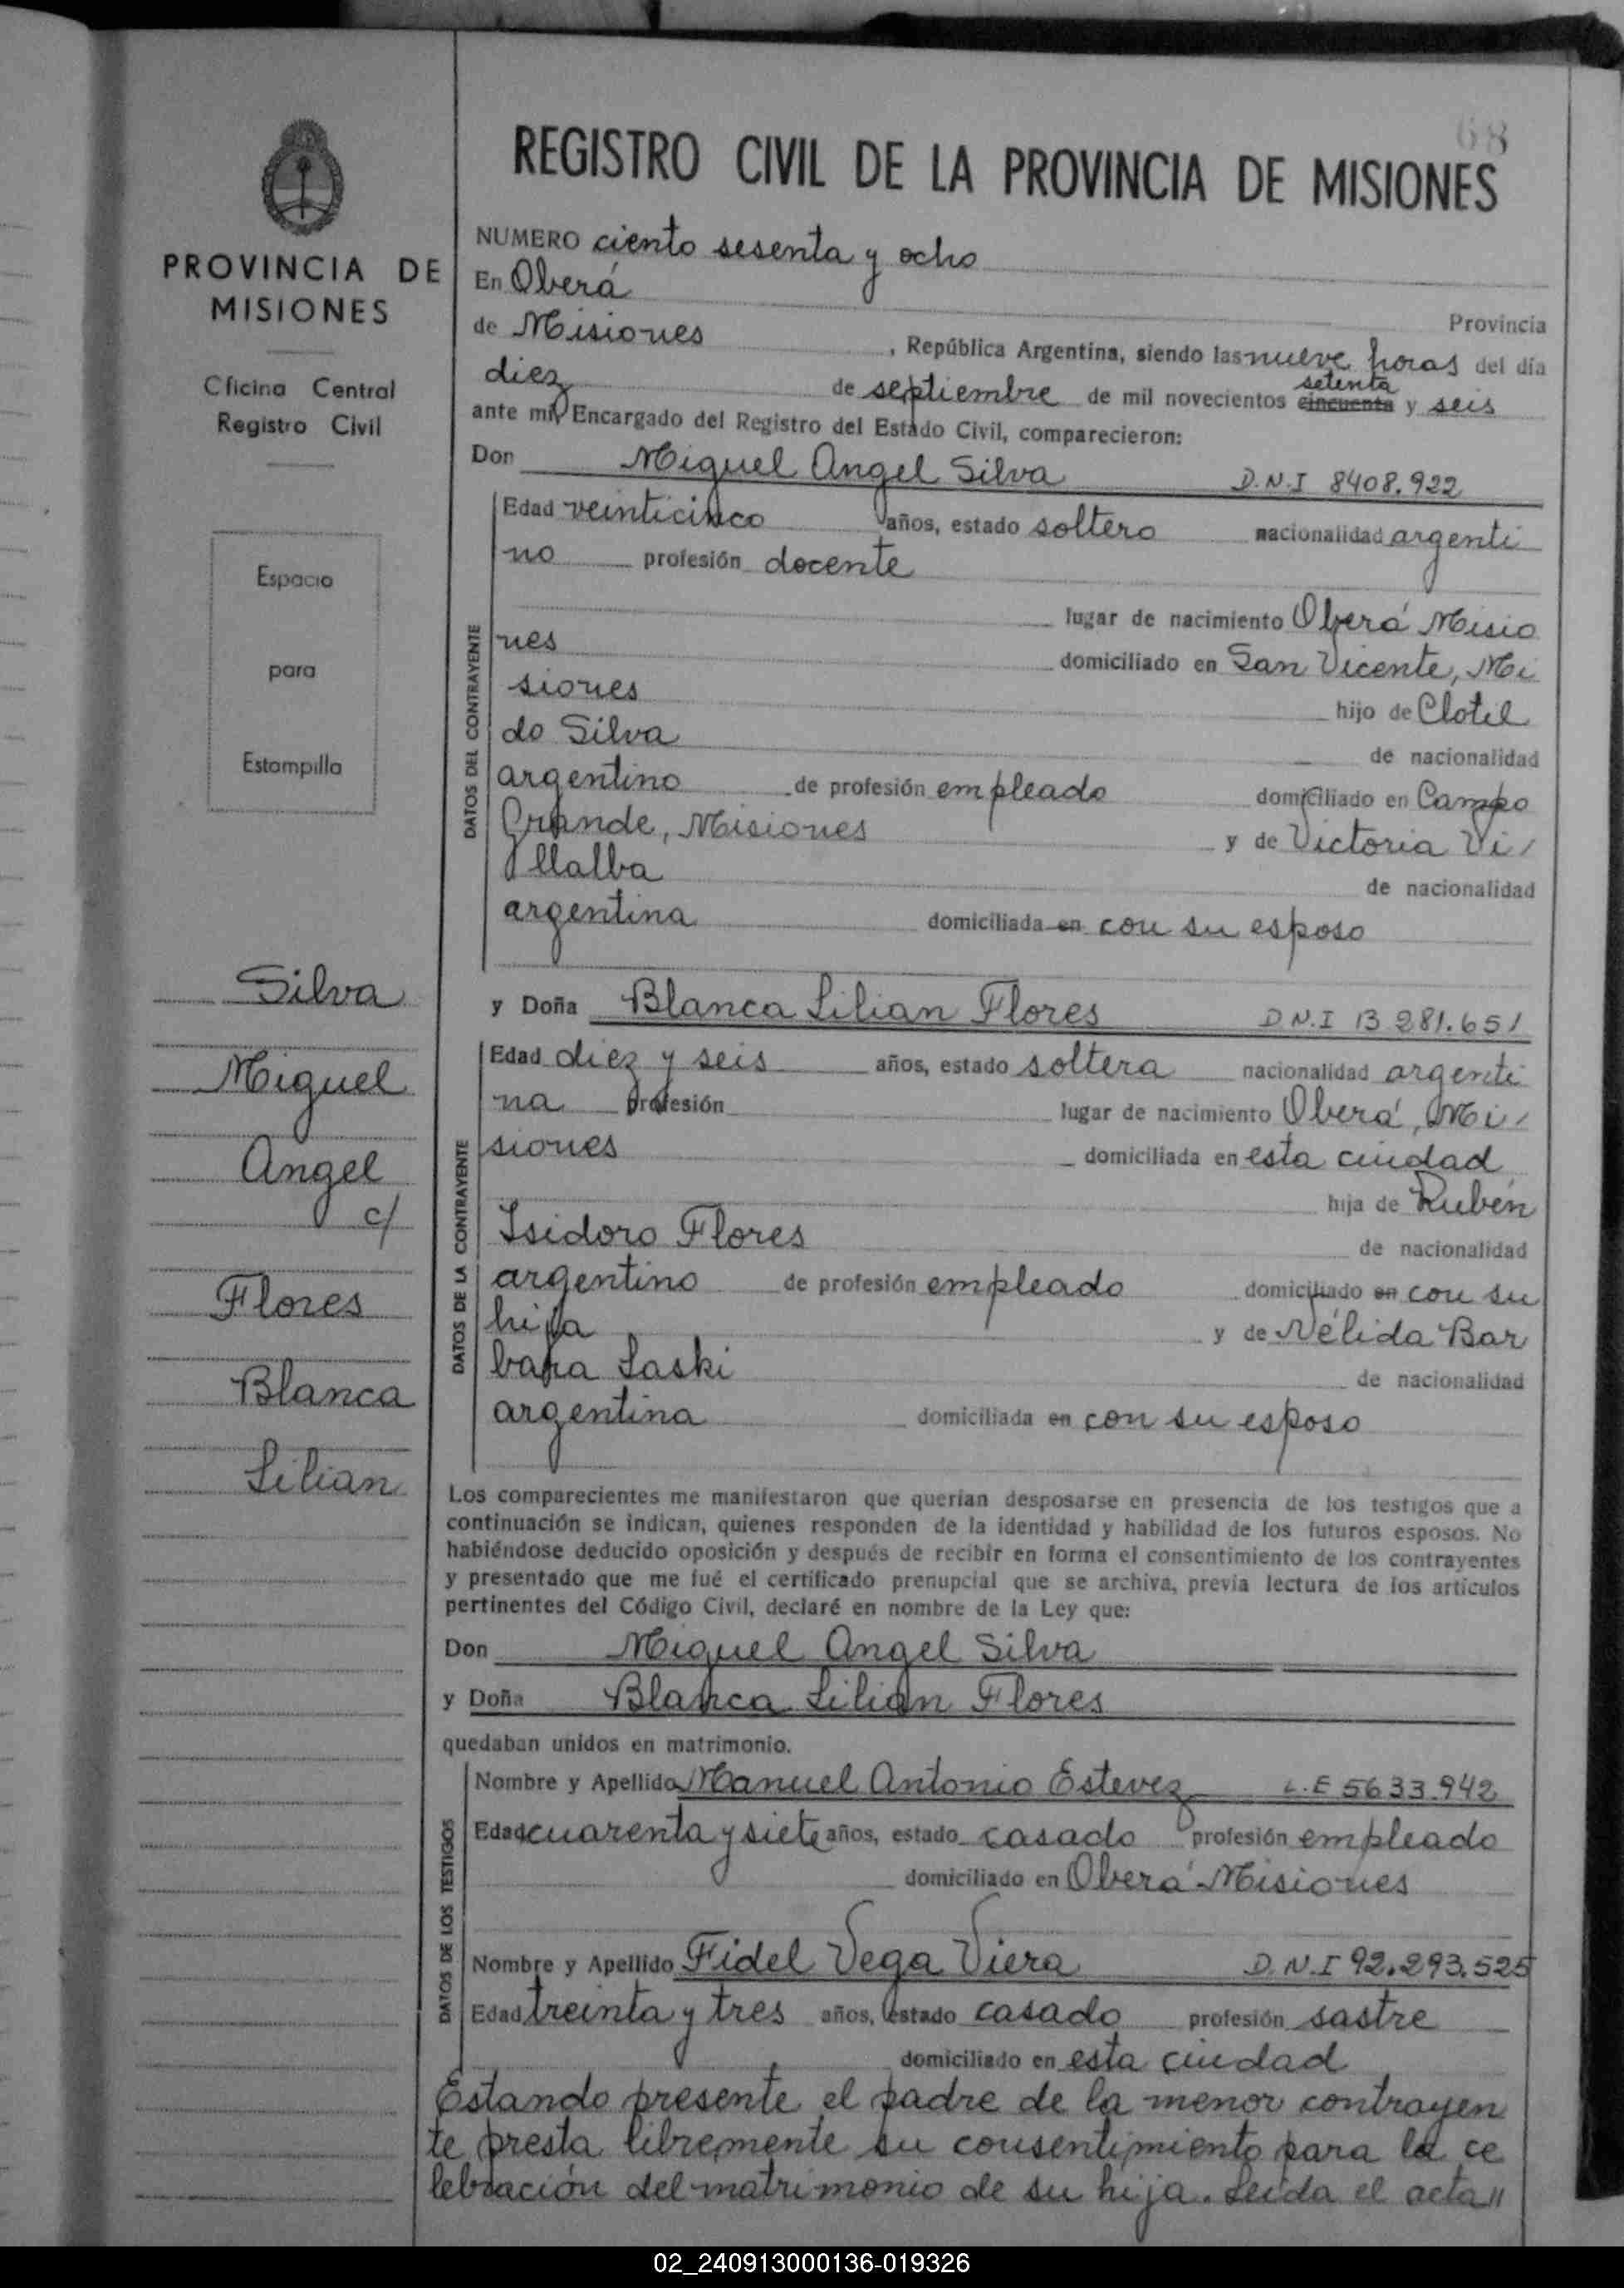 68
REGISTRO CIVIL DE LA PROVINCIA DE MISIONES
PROVINCIA DE
MISIONES
Oficina Central
Registro Civil
Espacio
para
Estampilla
Silva
Miguel
Angel
c/
Flores
Blanca
Lilian
NUMERO ciento sesenta y ocho
En Oberá
Provincia
de Misiones , República Argentina, siendo las nueve horas del día
setenta
diez de septiembre de mil novecientos cincuenta y seis
ante mi, Encargado del Registro del Estado Civil, comparecieron:
Don Miguel Angel Silva D.N.I 8408.922
DATOS DEL CONTRAYENTE
Edad veinticinco años, estado soltero nacionalidad argenti
no profesión docente
lugar de nacimiento Oberá Misio
nes domiciliado en San Vicente, Mi
siones hijo de Clotil
do Silva de nacionalidad
argentino de profesión empleado domiciliado en Campo
Grande, Misiones y de Victoria Vi/
llalba de nacionalidad
argentina domiciliada en con su esposo
y Doña Blanca Lilian Flores D.N.I 13 281.651
DATOS DE LA CONTRAYENTE
Edad diez y seis años, estado soltera nacionalidad argenti
na profesión lugar de nacimiento Oberá, Mi/
siones domiciliada en esta ciudad
hija de Rubén
Isidoro Flores de nacionalidad
argentino de profesión empleado domiciliado en con su
hija y de Nélida Bar
bara Laski de nacionalidad
argentina domiciliada en con su esposo
Los comparecientes me manifestaron que querían desposarse en presencia de los testigos que a
continuación se indican, quienes responden de la identidad y habilidad de los futuros esposos. No
habiéndose deducido oposición y después de recibir en forma el consentimiento de los contrayentes
y presentado que me fué el certificado prenupcial que se archiva, previa lectura de los artículos
pertinentes del Código Civil, declaré en nombre de la Ley que:
Don Miguel Angel Silva
y Doña Blanca Lilian Flores
quedaban unidos en matrimonio.
DATOS DE LOS TESTIGOS
Nombre y Apellido Manuel Antonio Estevez L.E 5633.942
Edad cuarenta y siete años, estado casado profesión empleado
domiciliado en Oberá Misiones
Nombre y Apellido Fidel Vega Viera D.N.I 92.293.525
Edad treinta y tres años, estado casado profesión sastre
domiciliado en esta ciudad
Estando presente el padre de la menor contrayen
te presta libremente su consentimiento para la ce
lebración del matrimonio de su hija. Leída el acta//
02_240913000136-019326